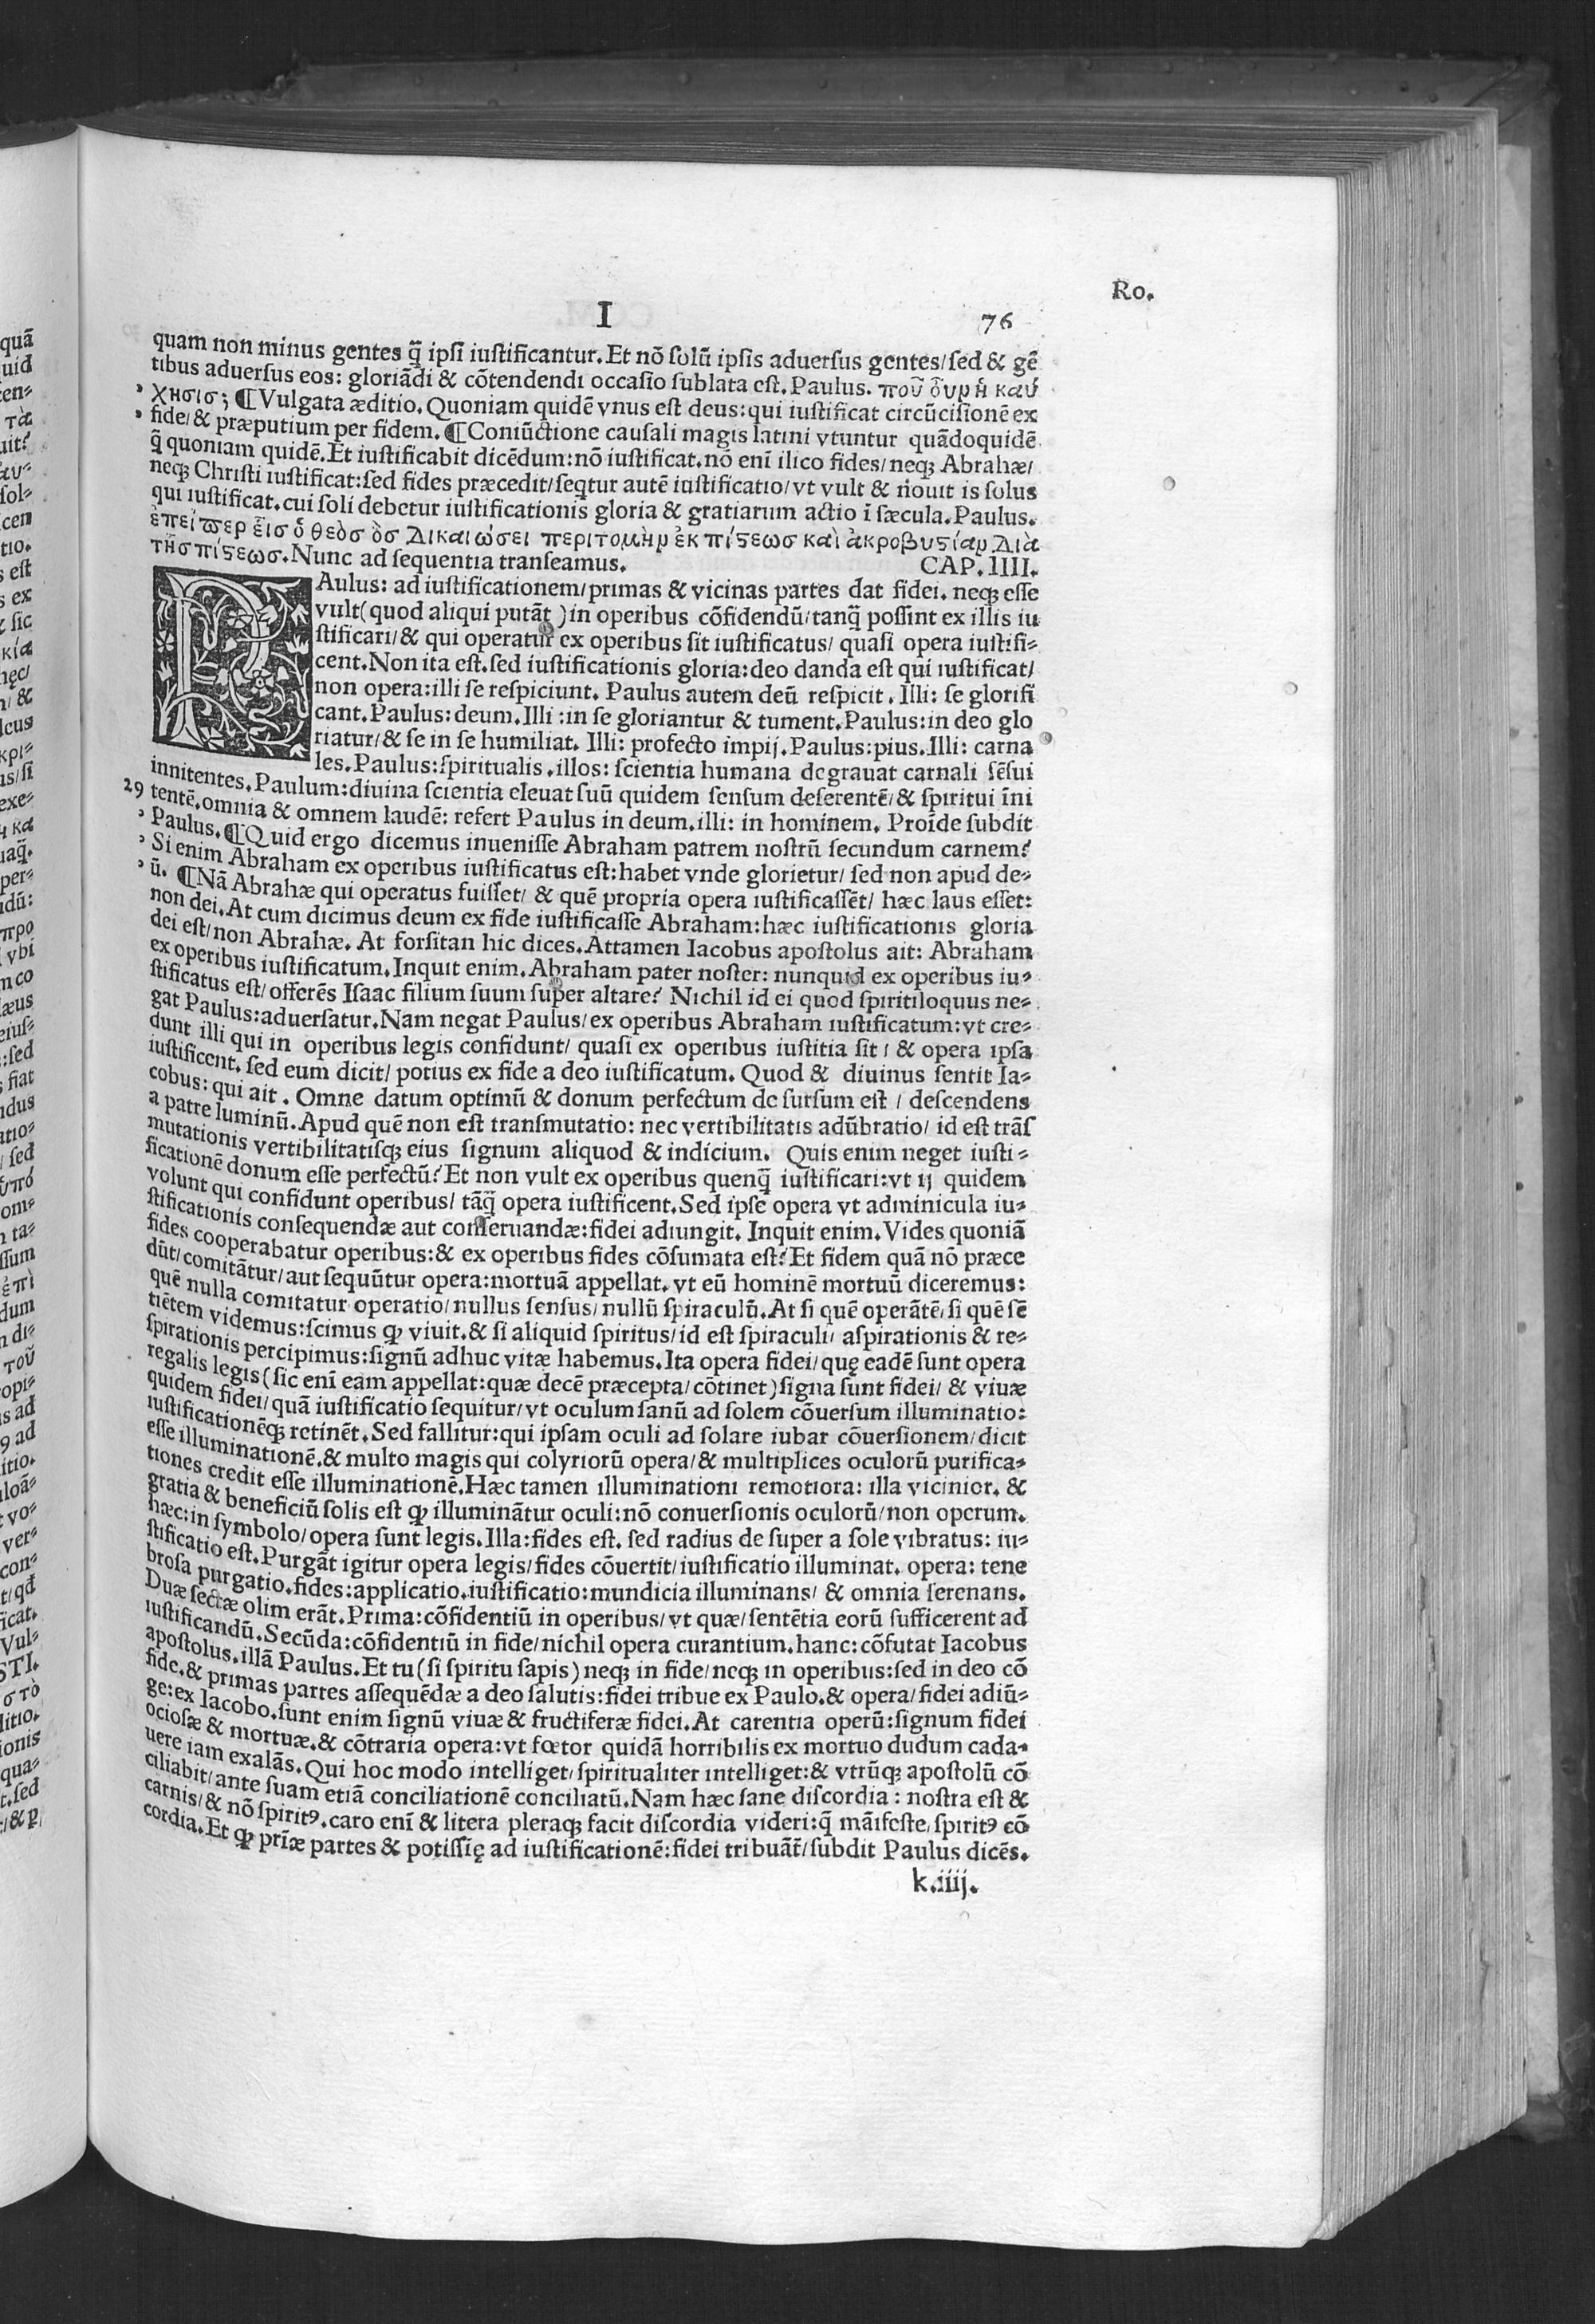 Ro.
I
76
quam non minus gentes q̃ ipſi iuſtificantur. Et nō ſolũ ipſis aduerſus gentes/ ſed & gẽ
tibus aduerſus eos: gloriãdi & cõtendendi occaſio ſublata eſt. Paulus. ποῦ ὂυν ἡ καύ
χησισ; ¶ Vulgata æditio. Quoniam quidẽ vnus eſt deus: qui iuſtificat circũciſionẽ ex
fide/ & præputium per fidem. ¶ Coniũctione cauſali magis latini vtuntur quãdoquidẽ
q̃ quoniam quidẽ. Et iuſtificabit dicẽdum: nõ iuſtificat. nõ enĩ ilico fides/ neqꝫ Abrahæ/
neqꝫ Chriſti iuſtificat: ſed fides præcedit/ ſeqtur autẽ iuſtificatio/ vt vult & nouit is ſolus
qui iuſtificat. cui ſoli debetur iuſtificationis gloria & gratiarum actio ĩ ſæcula. Paulus.
ἐπείπερ εἷισ ὁ θεὸσ ὃσ δικαιώσει περιτομὴν ἐκ πίϛεωσ καὶ ἀκροβυϛίαν διὰ
τῆσ πίϛεωσ. Nunc ad ſequentia tranſeamus. CAP. IIII.
PAulus: ad iuſtificationem/ primas & vicinas partes dat fidei. neqꝫ eſſe
vult (quod aliqui putãt) in operibus cõfidendũ/ tanq̃ poſſint ex illis iu
ſtificari/ & qui operatur ex operibus ſit iuſtificatus/ quaſi opera iuſtifi-
cent. Non ita eſt. ſed iuſtificationis gloria: deo danda eſt qui iuſtificat/
non opera: illi ſe reſpiciunt. Paulus autem deũ reſpicit. Illi: ſe glorifi
cant. Paulus: deum. Illi: in ſe gloriantur & tument. Paulus: in deo glo
riatur/ & ſe in ſe humiliat. Illi: profecto impij. Paulus: pius. Illi: carna
les. Paulus: ſpiritualis. illos: ſcientia humana degrauat carnali ſẽſui
innitentes. Paulum: diuina ſcientia eleuat ſuũ quidem ſenſum deferentẽ/ & ſpiritui ĩni
29 tentẽ. omnia & omnem laudẽ: refert Paulus in deum. illi: in hominem. Proĩde ſubdit
Paulus. ¶ Quid ergo dicemus inueniſſe Abraham patrem noſtrũ ſecundum carnem?
Si enim Abraham ex operibus iuſtificatus eſt: habet vnde glorietur/ ſed non apud de-
ũ. ¶ Nã Abrahæ qui operatus fuiſſet/ & quẽ propria opera iuſtificaſſẽt/ hæc laus eſſet:
non dei. At cum dicimus deum ex fide iuſtificaſſe Abraham: hæc iuſtificationis gloria
dei eſt/ non Abrahæ. At forſitan hic dices. Attamen Iacobus apoſtolus ait: Abraham
ex operibus iuſtificatum. Inquit enim. Abraham pater noſter: nunquid ex operibus iu-
ſtificatus eſt/ offerẽs Iſaac filium ſuum ſuper altare? Nichil id ei quod ſpiritiloquus ne-
gat Paulus: aduerſatur. Nam negat Paulus/ ex operibus Abraham iuſtificatum: vt cre-
dunt illi qui in operibus legis confidunt/ quaſi ex operibus iuſtitia ſit/ & opera ipſa
iuſtificent. ſed eum dicit/ potius ex fide a deo iuſtificatum. Quod & diuinus ſentit Ia-
cobus: qui ait. Omne datum optimũ & donum perfectum de ſurſum eſt/ deſcendens
a patre luminũ. Apud quẽ non eſt tranſmutatio: nec vertibilitatis adũbratio/ id eſt trãſ
mutationis vertibilitatiſqꝫ eius ſignum aliquod & indicium. Quis enim neget iuſti-
ficationẽ donum eſſe perfectũ? Et non vult ex operibus quenq̃ iuſtificari: vt ij quidem
volunt qui confidunt operibus/ tãq̃ opera iuſtificent. Sed ipſe opera vt adminicula iu-
ſtificationis conſequendæ aut conſeruandæ: fidei adiungit. Inquit enim. Vides quoniã
fides cooperabatur operibus: & ex operibus fides cõſumata eſt? Et fidem quã nõ præce
dũt/ comitãtur/ aut ſequũtur opera: mortuã appellat. vt eũ hominẽ mortuũ diceremus:
quẽ nulla comitatur operatio/ nullus ſenſus/ nullũ ſpiraculũ. At ſi quẽ operãtẽ/ ſi quẽ ſẽ
tiẽtem videmus: ſcimus ꝙ viuit. & ſi aliquid ſpiritus/ id eſt ſpiraculi/ aſpirationis & re-
ſpirationis percipimus: ſignũ adhuc vitæ habemus. Ita opera fidei/ quę eadẽ ſunt opera
regalis legis (ſic enĩ eam appellat: quæ decẽ præcepta/ cõtinet) ſigna ſunt fidei/ & viuæ
quidem fidei/ quã iuſtificatio ſequitur/ vt oculum ſanũ ad ſolem cõuerſum illuminatio:
iuſtificationẽqꝫ retinẽt. Sed fallitur: qui ipſam oculi ad ſolare iubar cõuerſionem/ dicit
eſſe illuminationẽ. & multo magis qui colyriorũ opera/ & multiplices oculorũ purifica-
tiones credit eſſe illuminationẽ. Hæc tamen illuminationi remotiora: illa vicinior. &
gratia & beneficiũ ſolis eſt ꝙ illuminãtur oculi: nõ conuerſionis oculorũ/ non operum.
hæc: in ſymbolo/ opera ſunt legis. Illa: fides eſt. ſed radius de ſuper a ſole vibratus: iu-
ſtificatio eſt. Purgãt igitur opera legis/ fides cõuertit/ iuſtificatio illuminat. opera: tene
broſa purgatio. fides: applicatio. iuſtificatio: mundicia illuminans/ & omnia ſerenans.
Duæ ſectæ olim erãt. Prima: cõfidentiũ in operibus/ vt quæ/ ſentẽtia eorũ ſufficerent ad
iuſtificandũ. Secũda: cõfidentiũ in fide/ nichil opera curantium. hanc: cõfutat Iacobus
apoſtolus. illã Paulus. Et tu (ſi ſpiritu ſapis) neqꝫ in fide/ neqꝫ in operibus: ſed in deo cõ
fide. & primas partes aſſequẽdæ a deo ſalutis: fidei tribue ex Paulo. & opera/ fidei adiũ-
ge: ex Iacobo. ſunt enim ſignũ viuæ & fructiferæ fidei. At carentia operũ: ſignum fidei
ocioſæ & mortuæ. & cõtraria opera: vt fœtor quidã horribilis ex mortuo dudum cada-
uere iam exalãs. Qui hoc modo intelliget/ ſpiritualiter intelliget: & vtrũqꝫ apoſtolũ cõ
ciliabit/ ante ſuam etiã conciliationẽ conciliatũ. Nam hæc ſane diſcordia: noſtra eſt &
carnis/ & nõ ſpiritꝰ. caro enĩ & litera pleraqꝫ facit diſcordia videri: q̃ mãifeſte/ ſpiritꝰ cõ
cordia. Et ꝙ prĩæ partes & potiſſię ad iuſtificationẽ: fidei tribuãt/ ſubdit Paulus dicẽs.
k.iiij.